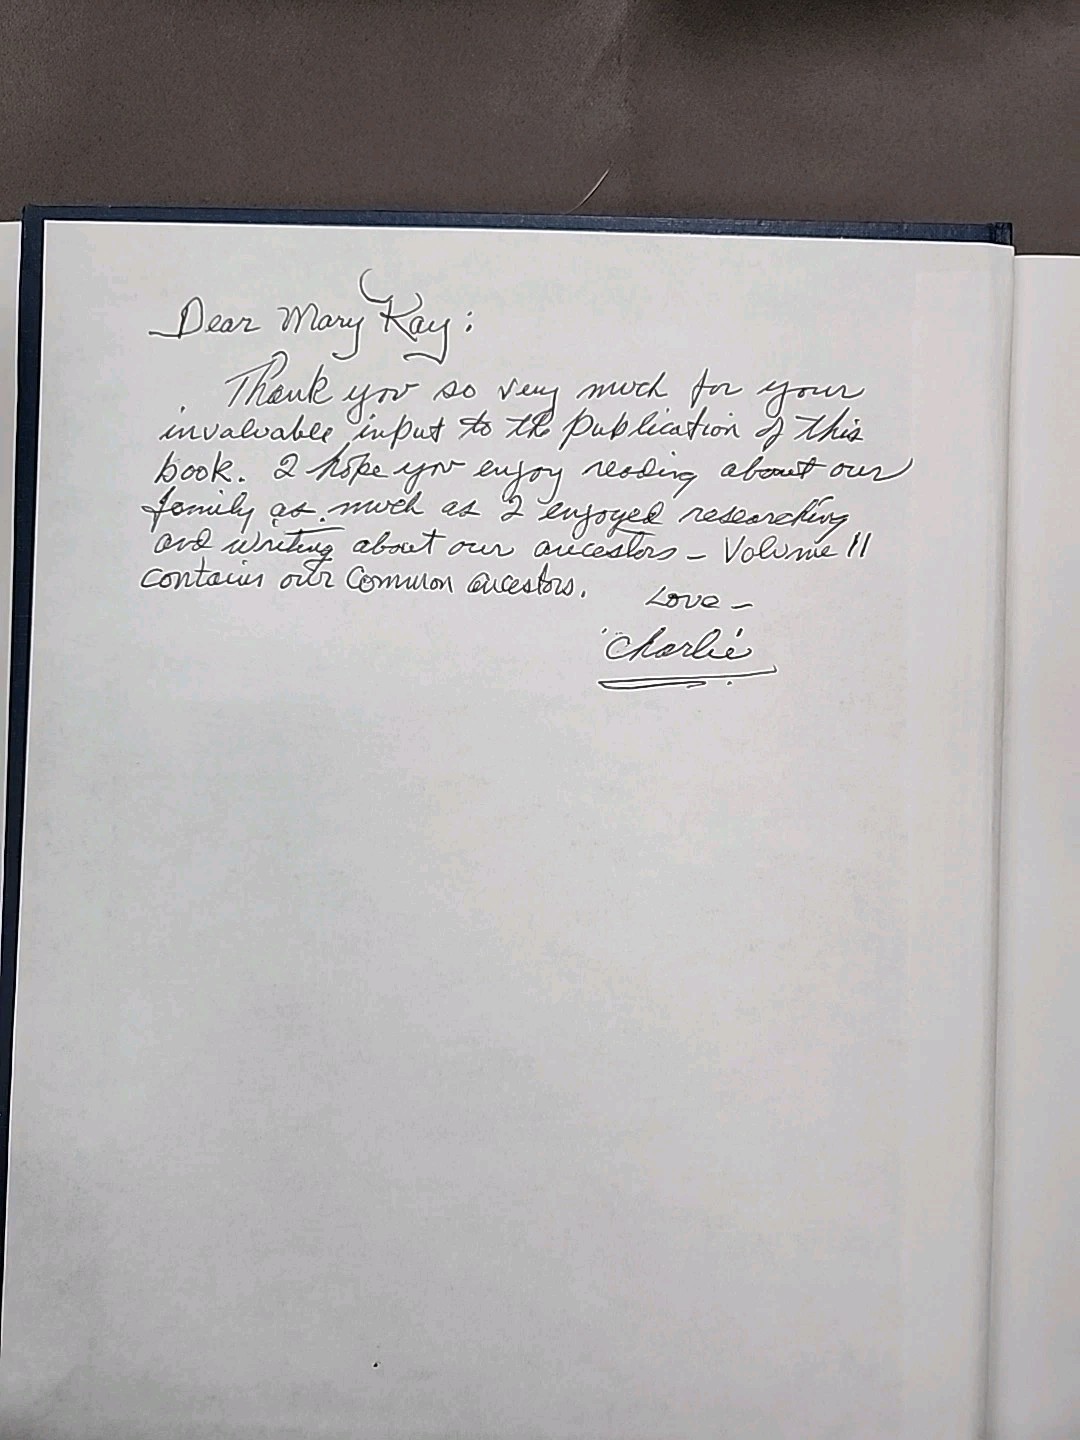 Dear Mary Kay:
Thank you so very much for your
invaluable input to the publication of this
book. I hope you enjoy reading about our
family as much as I enjoyed researching
and writing about our ancestors - Volume II
contains our common ancestors.
Love -
Charlie